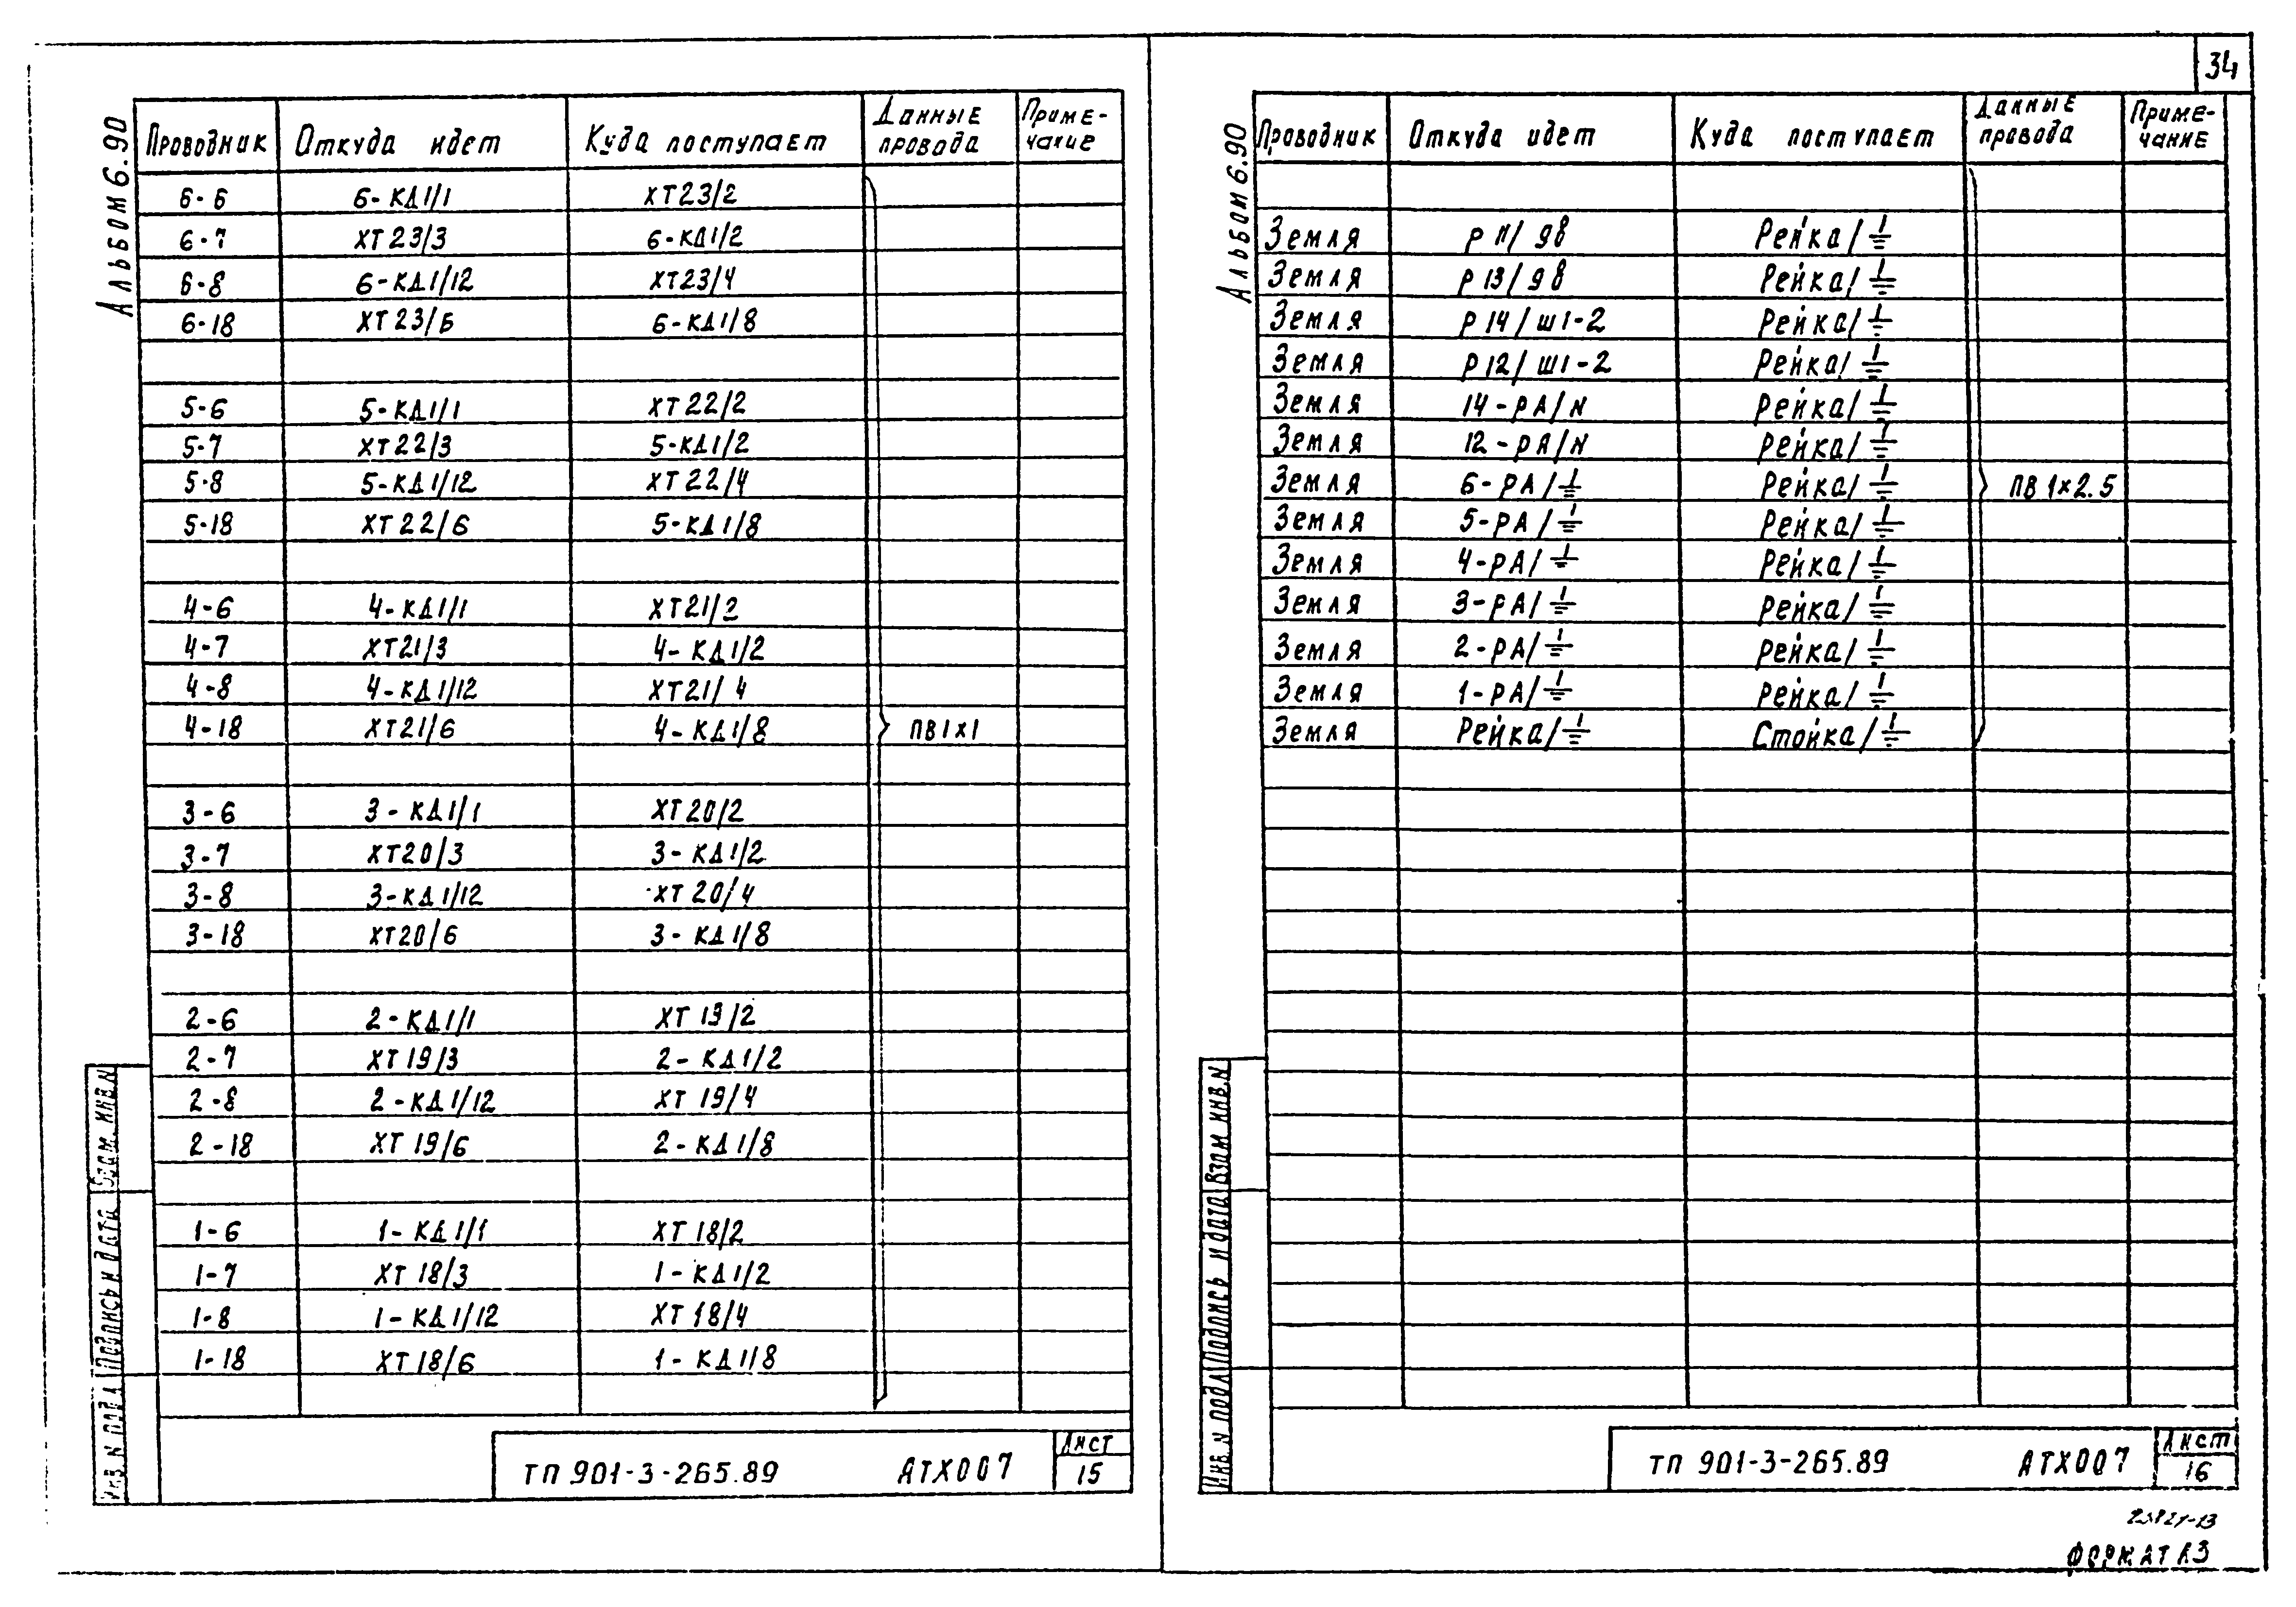 34
Альбом 6.90
Проводник Откуда идет Куда поступает Данные провода Примечание
6-6 6-КД1/1 ХТ23/2
6-7 ХТ23/3 6-КД1/2
6-8 6-КД1/12 ХТ23/4
6-18 ХТ23/6 6-КД1/8
5-6 5-КД1/1 ХТ22/2
5-7 ХТ22/3 5-КД1/2
5-8 5-КД1/12 ХТ22/4
5-18 ХТ22/6 5-КД1/8
4-6 4-КД1/1 ХТ21/2
4-7 ХТ21/3 4-КД1/2
4-8 4-КД1/12 ХТ21/4
4-18 ХТ21/6 4-КД1/8 ПВ1х1
3-6 3-КД1/1 ХТ20/2
3-7 ХТ20/3 3-КД1/2
3-8 3-КД1/12 ХТ20/4
3-18 ХТ20/6 3-КД1/8
2-6 2-КД1/1 ХТ19/2
2-7 ХТ19/3 2-КД1/2
2-8 2-КД1/12 ХТ19/4
2-18 ХТ19/6 2-КД1/8
1-6 1-КД1/1 ХТ18/2
1-7 ХТ18/3 1-КД1/2
1-8 1-КД1/12 ХТ18/4
1-18 ХТ18/6 1-КД1/8
Инв. N подл. Подпись и дата Взам. инв. N
ТП 901-3-265.89 АТХ007 Лист 15
Альбом 6.90
Проводник Откуда идет Куда поступает Данные провода Примечание
Земля Р11/98 Рейка/⏚
Земля Р13/98 Рейка/⏚
Земля Р14/Ш1-2 Рейка/⏚
Земля Р12/Ш1-2 Рейка/⏚
Земля 14-РА/N Рейка/⏚
Земля 12-РА/N Рейка/⏚
Земля 6-РА/⏚ Рейка/⏚ ПВ 1х2.5
Земля 5-РА/⏚ Рейка/⏚
Земля 4-РА/⏚ Рейка/⏚
Земля 3-РА/⏚ Рейка/⏚
Земля 2-РА/⏚ Рейка/⏚
Земля 1-РА/⏚ Рейка/⏚
Земля Рейка/⏚ Стойка/⏚
Инв. N подл. Подпись и дата Взам инв. N
ТП 901-3-265.89 АТХ007 Лист 16
Формат А3